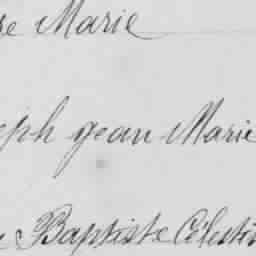 se Marie
eph jean Marie
Baptiste Célestin